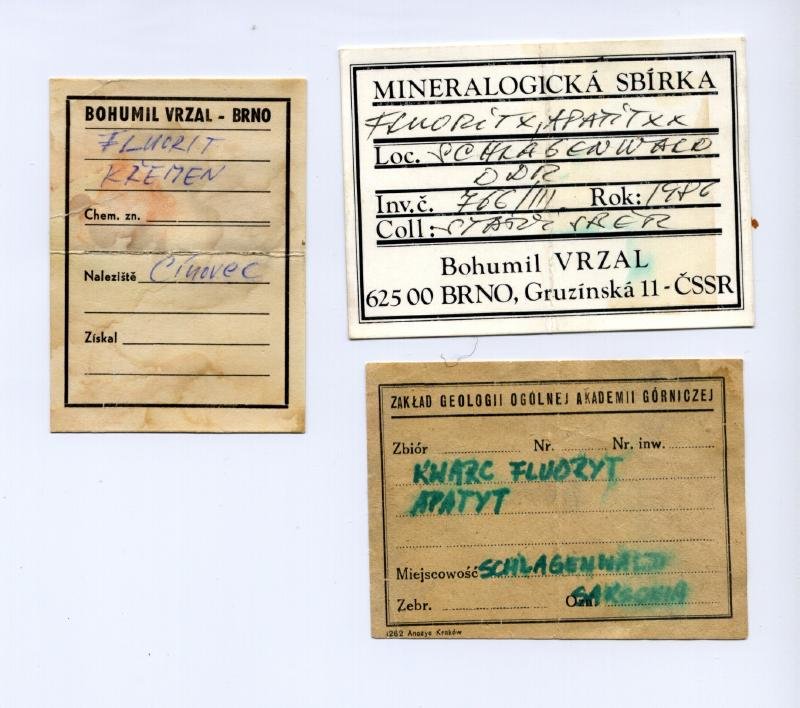 BOHUMIL VRZAL - BRNO
FLUORIT
KŘEMEN
Chem. zn.
Naleziště Cínovec
Získal
MINERALOGICKÁ SBÍRKA
FLUORIT X, APATIT XX
Loc. SCHLAGENWALD
DDR
Inv.č. 766/III Rok: 1986
Coll:
Bohumil VRZAL
625 00 BRNO, Gruzínská 11 - ČSSR
ZAKŁAD GEOLOGII OGÓLNEJ AKADEMII GÓRNICZEJ
Zbiór Nr. Nr. inw.
KWARC FLUORYT
APATYT
Miejscowość SCHLAGENWALD
Zebr. Ozn. SAKSONIA
1262 Kraków